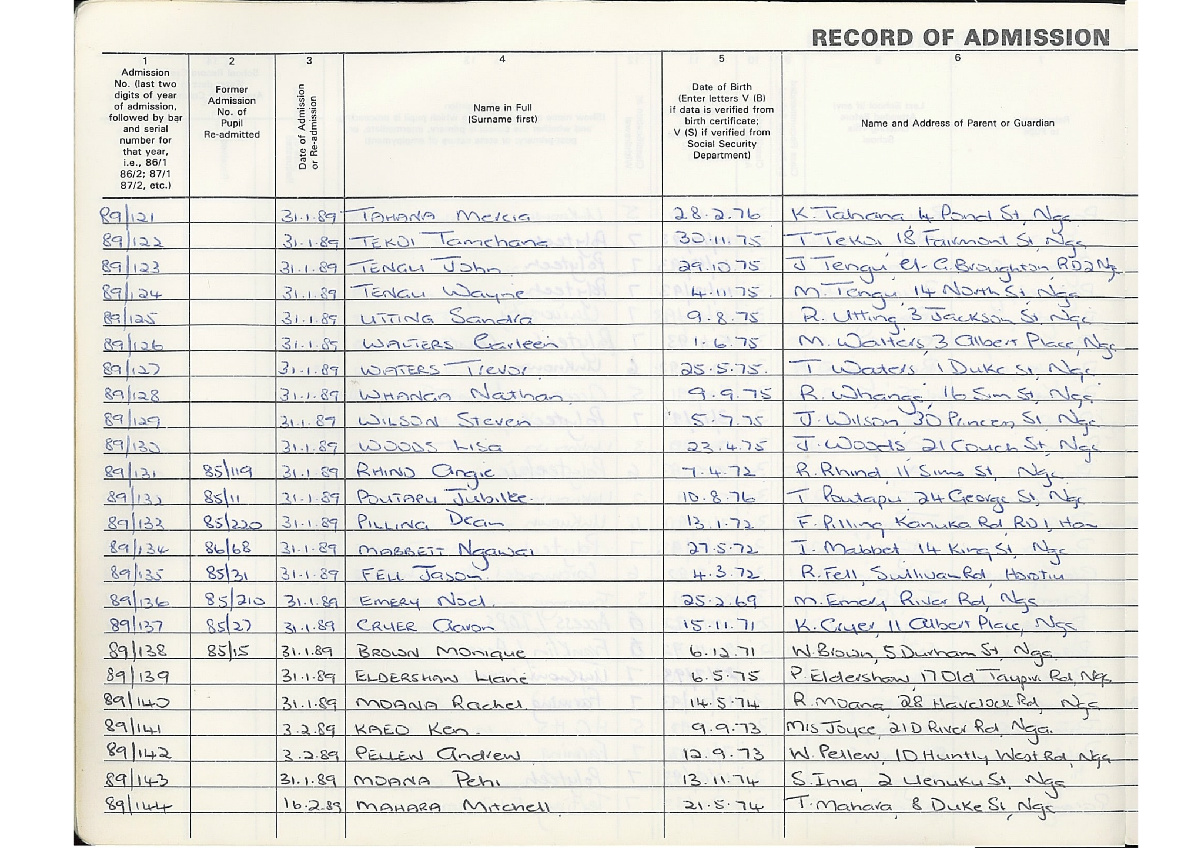 RECORD OF ADMISSION
1 2 3 4 5 6
Admission No. (last two digits of year of admission, followed by bar and serial number for that year, i.e., 86/1 86/2; 87/1 87/2, etc.)
Former Admission No. of Pupil Re-admitted
Date of Admission or Re-admission
Name in Full (Surname first)
Date of Birth (Enter letters V (B) if data is verified from birth certificate; V (S) if verified from Social Security Department)
Name and Address of Parent or Guardian
89/121 31.1.89 TAHANA Mercia 28.2.76 K. Tahana 4 Pond St, Nga
89/122 31.1.89 TEKOI 30.11.75 T Tekoi 18 Fairmont St, Nga
89/123 31.1.89 TENGU John 29.10.75 J Tengu, C. Broughton, RD2 Ng
89/124 31.1.89 TENGU Wayne 4.11.75 M. Tengu, 14 North St, Nga
89/125 31.1.89 UTTING Sandra 9.8.75 R. Utting 3 Jackson St, Nga
89/126 31.1.89 WALTERS Carleen 1.6.75 M. Walters, 3 Albert Place, Nga
89/127 31.1.89 WATERS Trevor 25.5.75. T Waters 1 Duke St, Nga
89/128 31.1.89 WHANGA Nathan. 9.9.75 R. Whanga, 16 Sim St, Nga
89/129 31.1.89 WILSON Steven 5.7.75 J. Wilson 30 Princess St, Nga
89/130 31.1.89 WOODS Lisa 23.4.75 J. Woods 21 Couch St, Nga
89/131 85/119 31.1.89 RHIND Angie 7.4.72 R. Rhind, 11 Sims St, Nga
89/132 85/11 31.1.89 POUTAPU Jubilee. 10.8.76 T Poutapu 24 George St, Nga
89/133 85/220 31.1.89 PILLING Dean 13.1.72 F. Pilling, Kanuka Rd RD1, Ham
89/134 86/68 31.1.89 MABBETT Ngawai 27.5.72 I. Mabbet 14 King St, Nga
89/135 85/31 31.1.89 FELL Jason. 4.3.72 R. Fell, Sullivan Rd, Horotiu
89/136 85/210 31.1.89 EMERY Noel. 25.2.69 M. Emery River Rd, Nga
89/137 85/27 31.1.89 CRYER Aaron 15.11.71 K. Cryer, 11 Albert Place, Nga
89/138 85/15 31.1.89 BROWN Monique 6.12.71 W. Brown, 5 Durham St, Nga
89/139 31.1.89 ELDERSHAW Liane 6.5.75 P. Eldershaw, 17 Old Taupiri Rd, Nga
89/140 31.1.89 MOANA Rachel. 14.5.74 R. Moana 28 Havelock Rd, Nga
89/141 3.2.89 KAEO Ken. 9.9.73 Mrs Joyce, 21D River Rd, Nga.
89/142 3.2.89 PELLEW Andrew 12.9.73 W. Pellew, 10 Huntly West Rd, Nga
89/143 31.1.89 MOANA Pehi 13.11.74 S. Inia, 2 Uenuku St, Nga
89/144 16.2.89 MAHARA Mitchell 21.5.74 T. Mahara, 8 Duke St, Nga